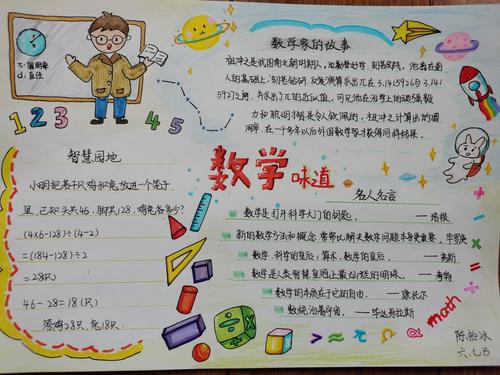 π:圆周率
d:直径
1 2 3 4 5
数学家的故事
祖冲之是我国南北朝时期人,
人的基础上,刻苦钻研,反复演算求出π在3.1415926与3.141
5927之间,并求出了π的
力和聪明才智是令人钦佩的,祖冲之计算出的圆
周率,在一千多年以后外国数学家才获得同样结果.
智慧园地
小明把若干只鸡和兔放进一个笼子
里,已知头共46,脚共128,鸡兔各多少?
(4×6-128)÷(4-2)
=(184-128)÷2
=28(只)
46-28=18(只)
答:鸡28只,兔18只.
数学味道
名人名言
数学是打开科学大门的钥匙. ——培根
新的数学方法和概念,常常比解决数学问题本身更重要. 华罗庚
数学,科学的皇后;算术,数学的皇后. ——高斯
数学是人类智慧皇冠上最灿烂的明珠. ——考特
数学的本质在于它的自由. ——康托尔
数统治着宇宙. ——毕达哥拉斯
math
六.七B